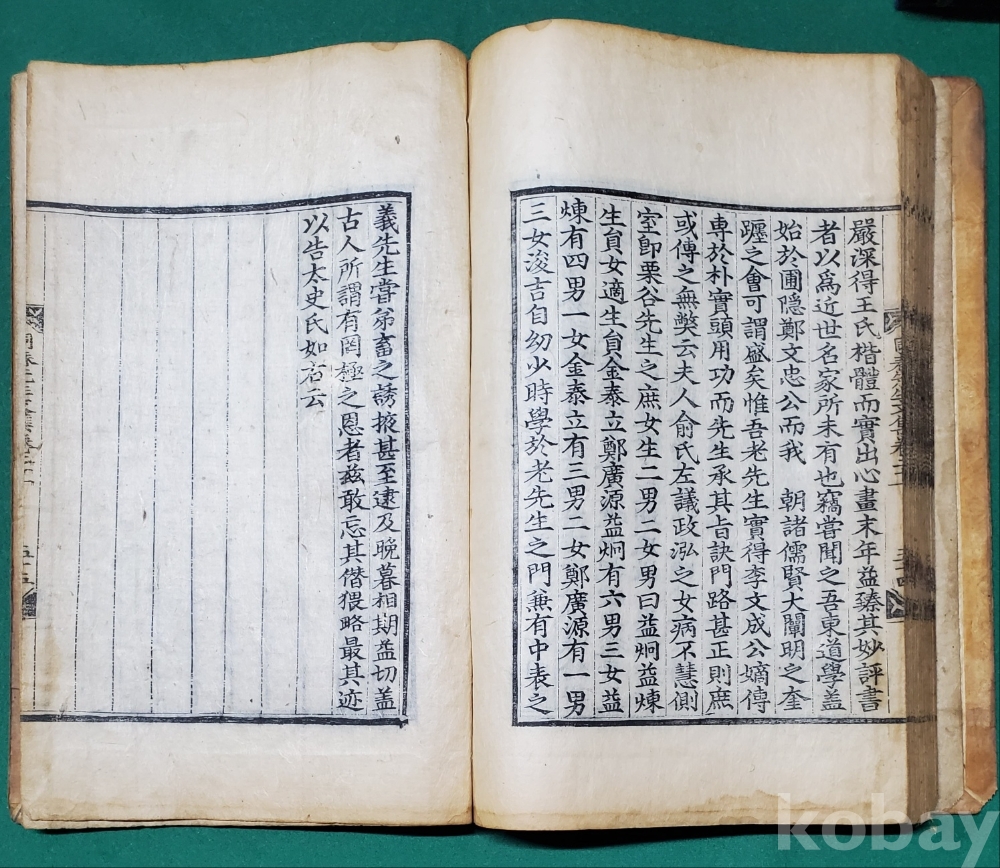 嚴深得王氏楷體而實出心畫末年益臻其妙評書
者以爲近世名家所未有也竊嘗聞之吾東道學盖
始於圃隱鄭文忠公而我　朝諸儒賢大闡明之奎
躔之會可謂盛矣惟吾老先生實得李文成公嫡傳
専於朴實頭用功而先生承其旨訣門路甚正則庶
或傳之無獘云夫人俞氏左議政泓之女病不慧側
室卽栗谷先生之庶女生二男二女男曰益炯益煉
生員女適生員金泰立鄭廣源益炯有六男三女益
煉有四男一女金泰立有三男二女鄭廣源有一男
三女浚吉自幼少時學於老先生之門兼有中表之
義先生嘗弟畜之誘掖甚至逮及晩暮相期益切盖
古人所謂有罔極之恩者玆敢忘其僭猥略最其迹
以告太史氏如右云
五十五
kobay